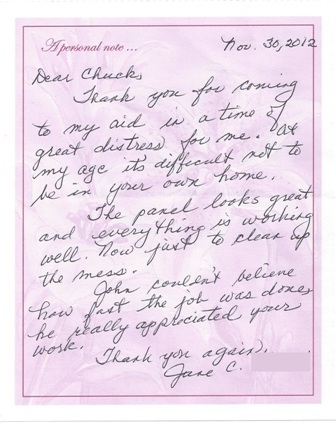 A personal note ...
Nov. 30, 2012
Dear Chuck,
Thank you for coming
to my aid in a time of
great distress for me. At
my age it's difficult not to
be in your own home.
The panel looks great
and everything is working
well. Now just to clean up
the mess.
John couldn't believe
how fast the job was done,
he really appreciated your
work.
Thank you again.
Jane C.